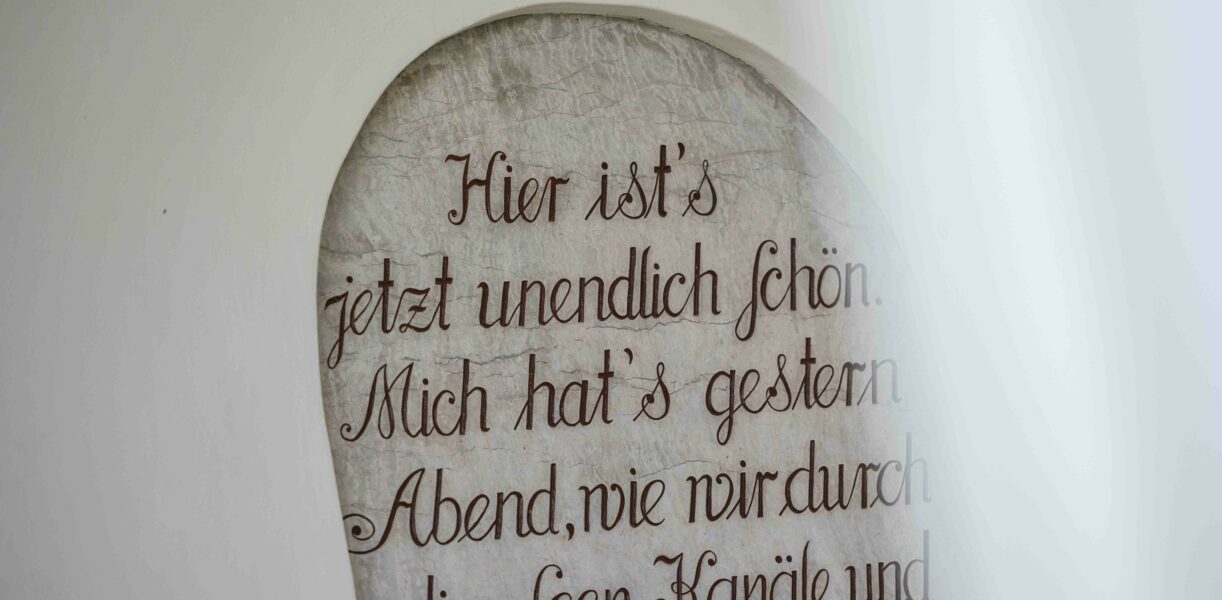 Hier ist's
jetzt unendlich schön.
Mich hat's gestern
Abend, wie wir durch
die Seen Kanäle und